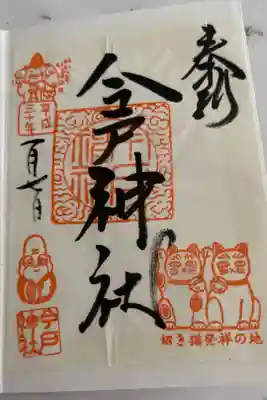 奉拝
今戸神社
平成
三十年
一月七日
今戸
神社
招き猫発祥の地